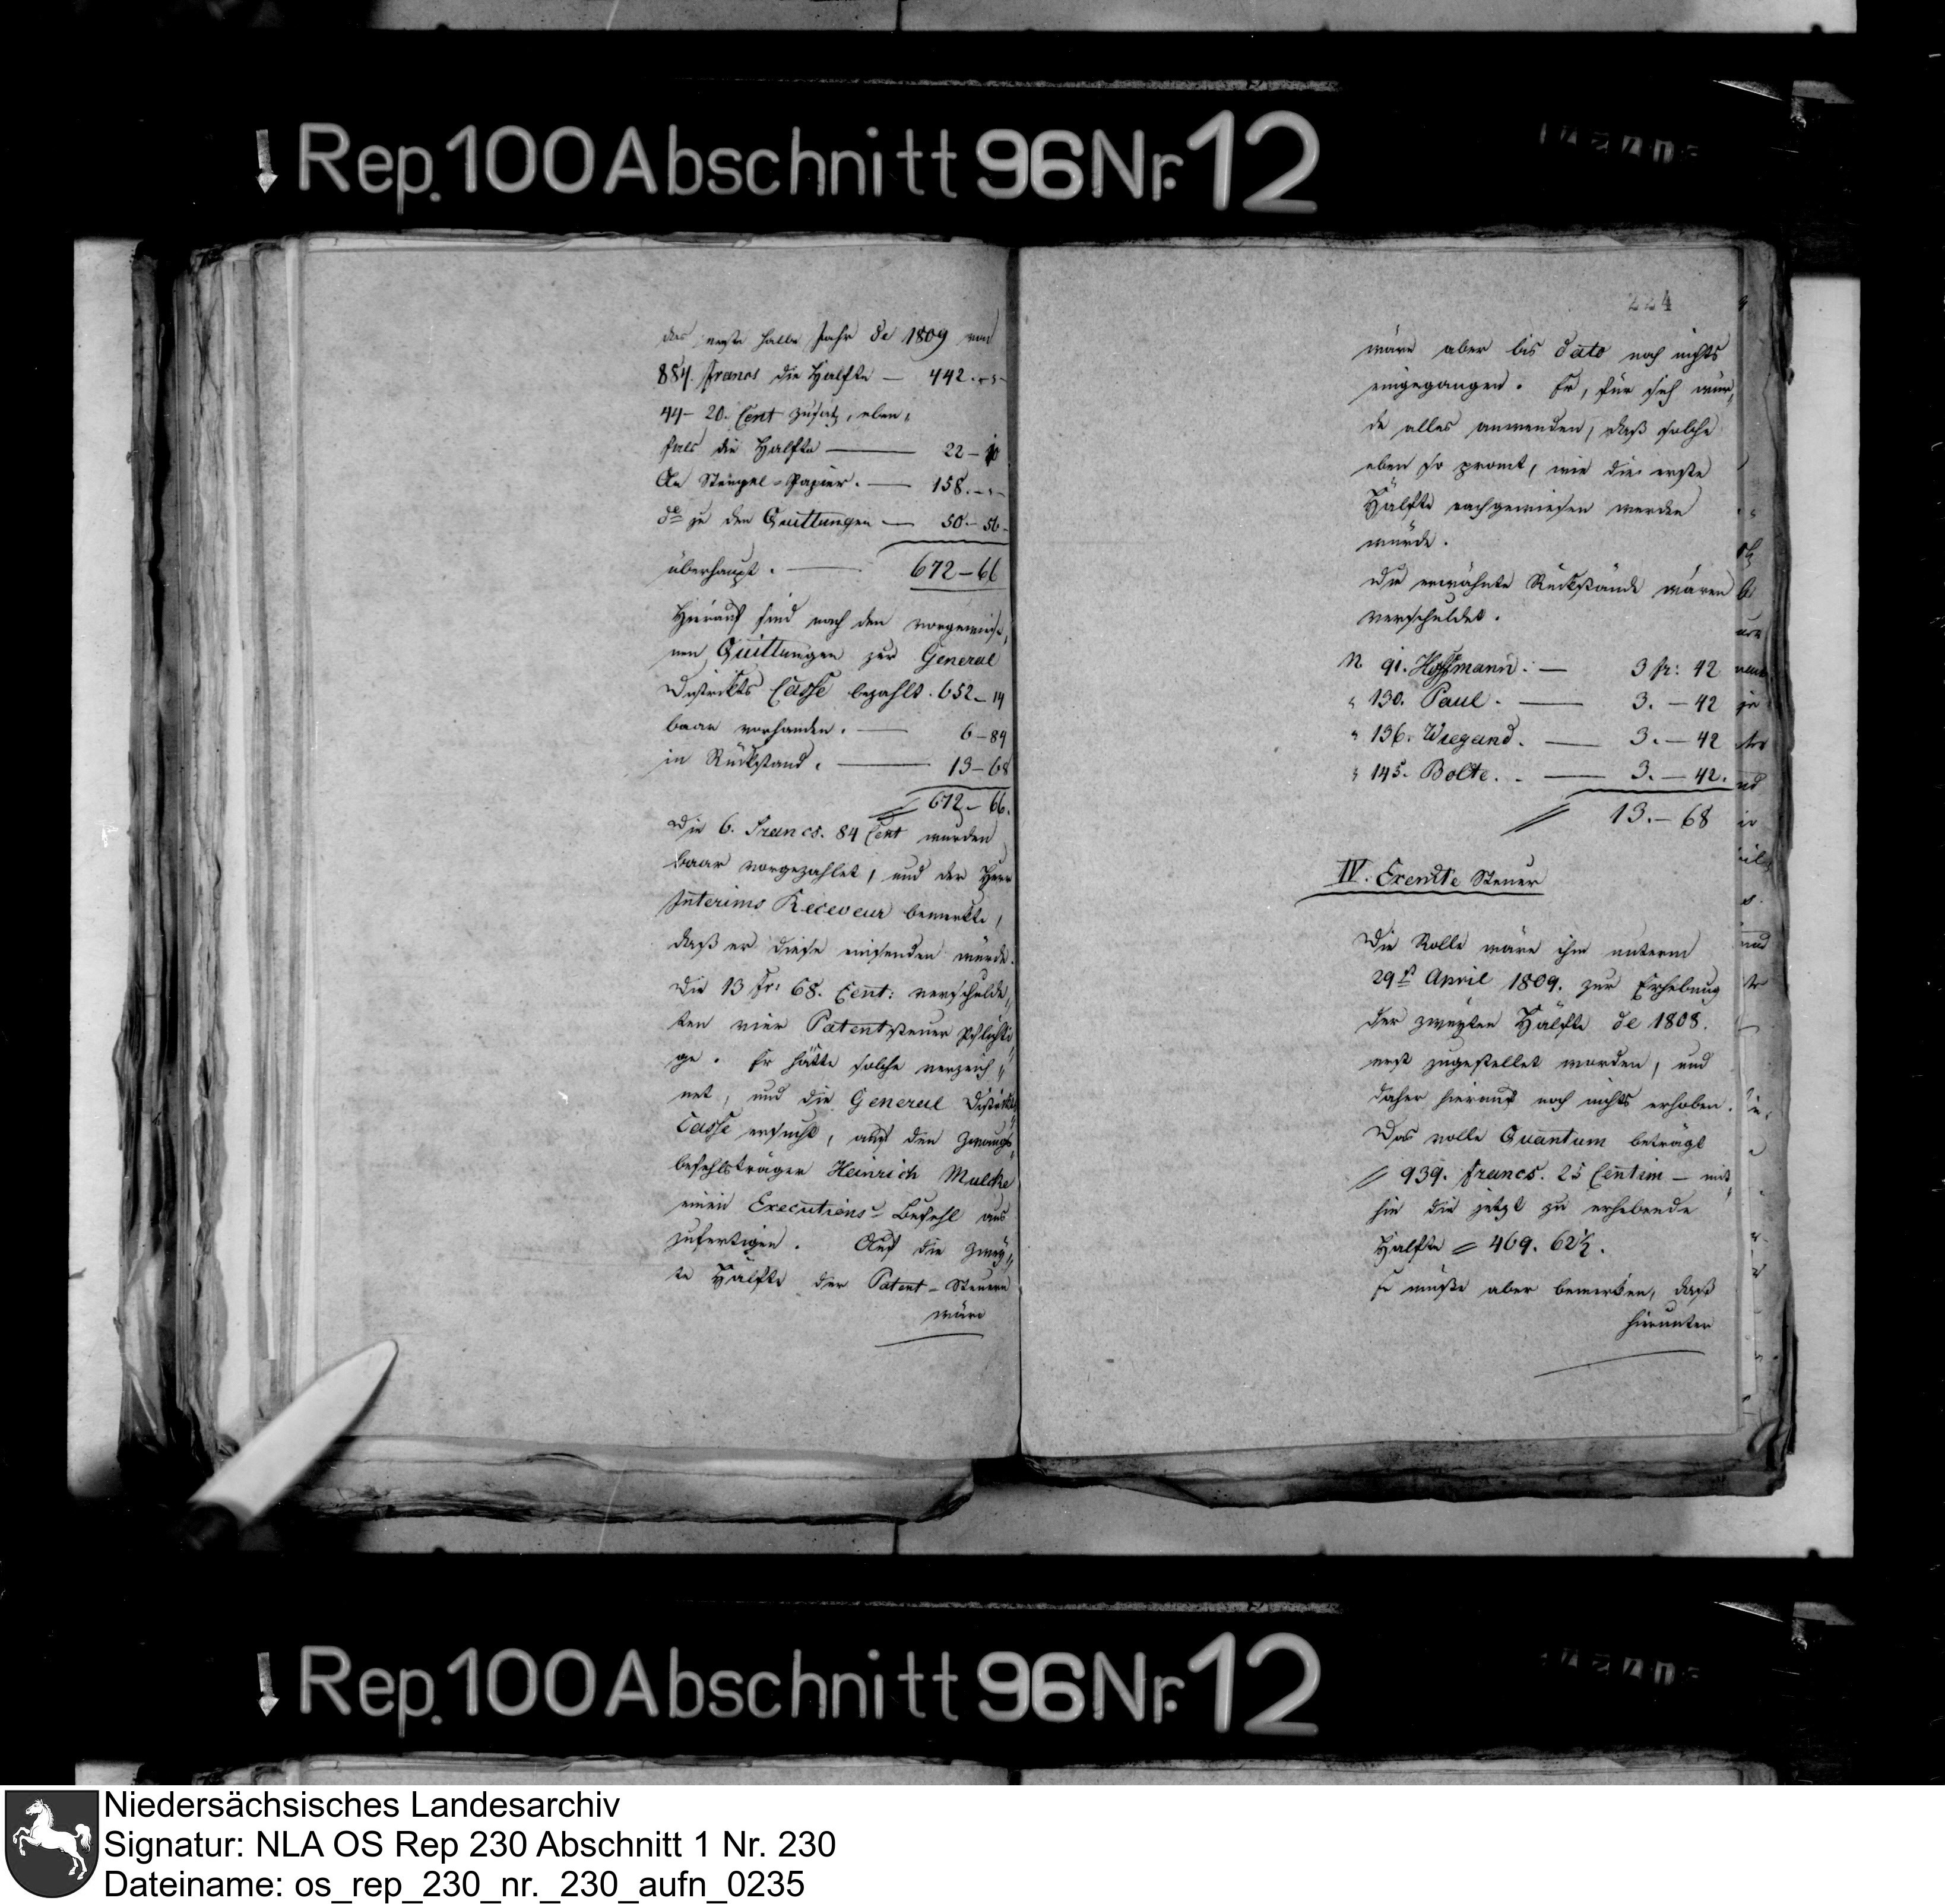 Rep. 100 Abschnitt 96 Nr. 12
das erste halbe Jahr de 1809 von
884. Francs die Hälfte — 442. -,-
44 - 20. Cent zusatz, eben„
fals die Hälfte — 22 - 10
An Stempel-Papier. — 158. -,-
do zu den Quittungen — 50 - 56 -
überhaupt. — 672 - 66
Hierauf sind nach den vorgewiese„
nen Quittungen zur General
Districkts Casse bezahlt. 652 - 14
baar vorhanden. — 6 - 84
in Rückstand. — 13 - 68
672 - 66.
Die 6. Francs. 84 Cent wurden
baar vorgezahlet, und der Herr
Interims Receveur bemerkte,
daß er diese einsenden würde.
Die 13 Fr: 68. Cent: verschulde„
ten vier Patentsteuer Pflichti„
ge. Er hätte solche verzeich„
net, und die General Districkts
Casse ersucht, auf den Zwangs„
befehlsträger Heinrich Mulcke
einen Executions-Befehl aus
zufertigen. Auf die zwey„
te Hälfte der Patent-Steuern
wäre
224
wäre aber bis dato noch nichts
eingegangen. Er, für sich wür„
de alles anwenden, daß solche
eben so promt, wie die erste
Hälfte nachgewiesen werden
würde.
Die erwähnte Rückstände wären
verschuldet.
N 91. Hoffmann. — 3 fr: 42
" 130. Paul. — 3. — 42
" 136. Wiegand. — 3. — 42
" 145. Bolte. — 3. — 42.
13. — 68
IV. Exemte Steuer
Die Rolle wäre ihm unterm
29st April 1809. zur Erhebung
der zweyten Hälfte de 1808.
erst zugestellet worden, und
daher hierauf noch nichts erhoben.
Das volle Quantum beträgt
// 939. Francs. 25 Centim — mit„
hin die jetzt zu erhebende
Hälfte = 469. 62½.
Er müßte aber bemerken, daß
hierunter
Rep. 100 Abschnitt 96 Nr. 12
Niedersächsisches Landesarchiv
Signatur: NLA OS Rep 230 Abschnitt 1 Nr. 230
Dateiname: os_rep_230_nr._230_aufn_0235